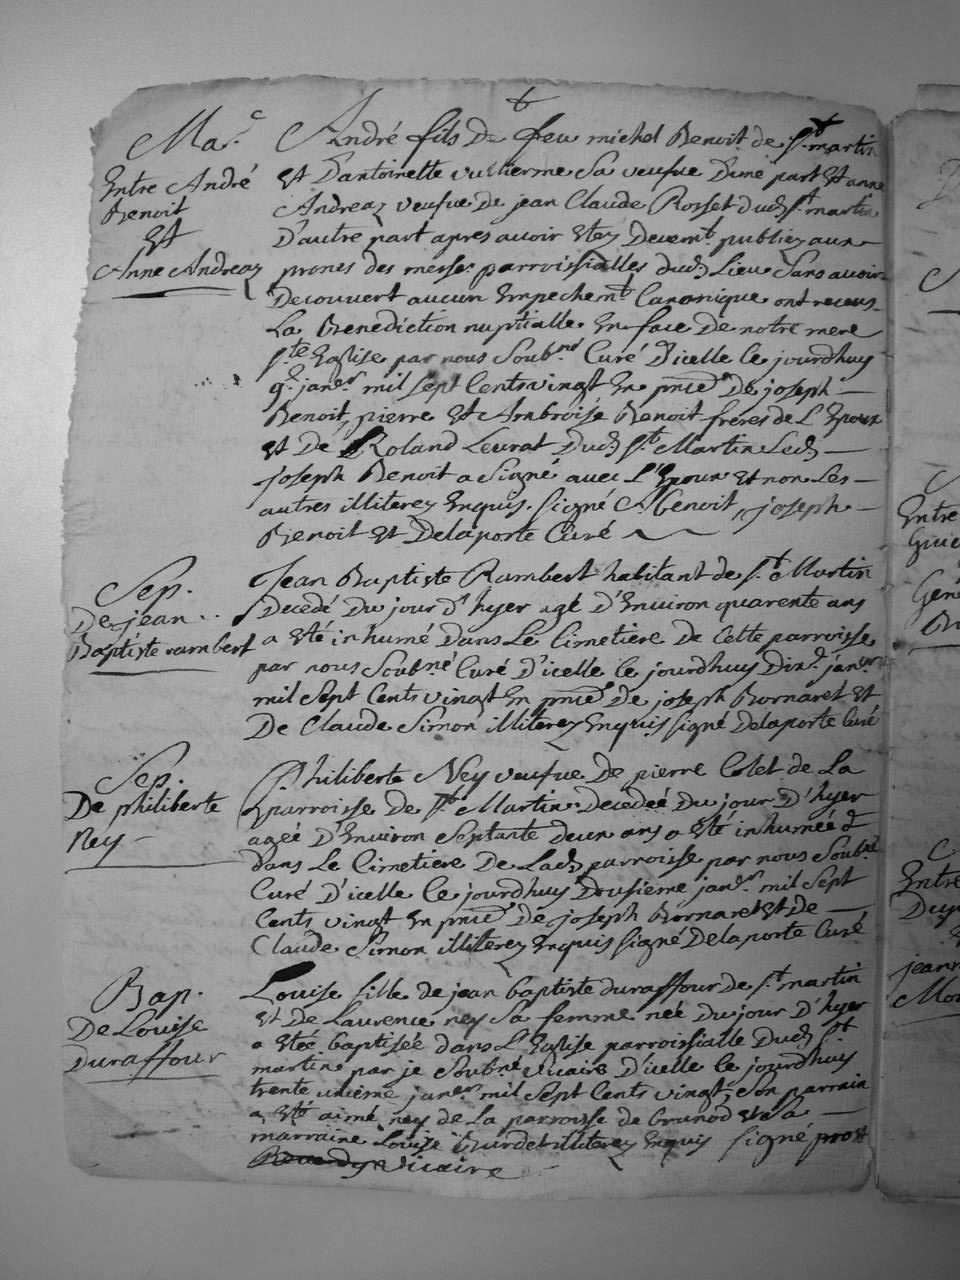 Ma.e
Entre André
Benoit
Et
Anne Andreaz
André fils De feu michel Benoit de St. martin
Et D'antoinette vullierme Sa veufve D'une part Et anne
Andreaz veufve De jean Claude Rosset dud. St martin
D'autre part apres avoir Etez Decemt. publiez aux
prones des messes parroissialles dud. Lieu Sans avoir
Decouvert aucun Empechemt. Canonique ont receus
La Benediction nuptialle En face De notre mere
Ste Eglise par nous Soubné Curé D'icelle Ce jourdhuy
9e. janer mil Sept Cents vingt En pnce De joseph
Benoit, pierre Et Ambroise Benoit freres de L'Epoux
Et De Roland Levrat Dud. St. Martin Led.
joseph Benoit a Signé avec L'Epoux Et non Les
autres illiterez Enquis. Signé A. benoit, joseph
Benoit Et Delaporte Curé
Sep.
De jean
Baptiste rambert
Jean Baptiste Rambert habitant de St. Martin
Decedé Du jour d'hyer agé D'Environ quarente ans
a Eté inhumé Dans Le Cimetiere De Cette parroisse
par nous Soubné Curé D'icelle Ce jourdhuy Dix janer
mil Sept Cents vingt En pnce De joseph Bornaret Et
De Claude Simon illiterez Enquis Signé Delaporte Curé
Sep.
De philiberte
Ney
Philiberte Ney veufve De pierre Colet de La
parroisse de St. Martin Decedeé Du jour D'hyer
ageé D'Environ Septante Deux ans a Eté inhumée
dans Le Cimetiere De Lad. parroisse par nous Soubné
Curé D'icelle Ce jourdhuy Dousieme janer. mil Sept
Cents vingt En pnce De joseph Bornaret Et De
Claude Simon illiterez Enquis Signé Delaporte Curé
Bap.
De Louise
Duraffour
Louise fille de jean baptiste duraffour de St. martin
Et De Laurence ney Sa femme née Du jour D'hyer
a Eteé baptiseé dans L'Eglise parroissialle Dud. St.
martin par je Soubné vicaire D'icelle Ce jourdhuy
trente unieme janer mil Sept Cents vingt, Son parrain
a Eté aimé ney de La parroisse de Grunod Et Sa
marraine Louise Burdet illiterez Enquis Signé prost
vicaire
Entre
Entre